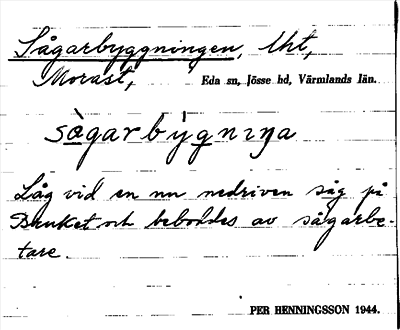 Sågarbyggningen, Uht,
Morast, Eda sn, Jösse hd, Värmlands län.
sàgarbýgnıŋa
Låg vid en nu nedriven såg på
Bruket och beboddes av sågarbe-
tare.
PER HENNINGSSON 1944.